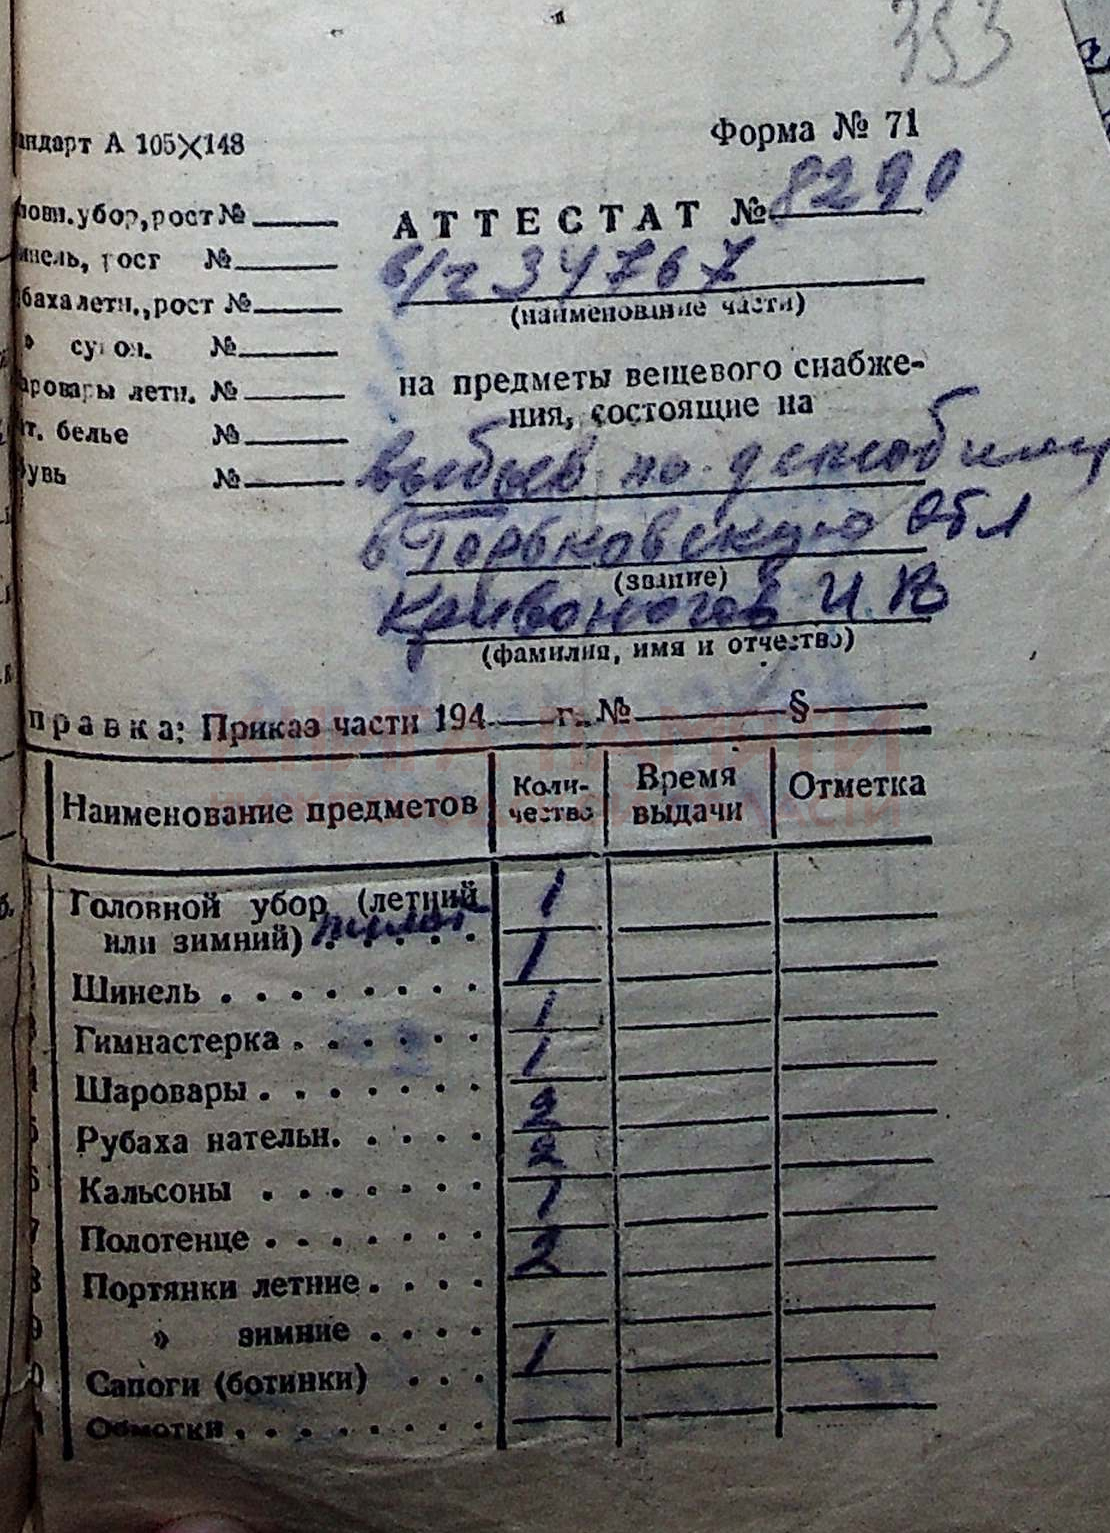 353
андарт А 105×148
Форма № 71
ловн. убор, рост №
АТТЕСТАТ № 8290
инель, рост №
в/ч 34767
(наименование части)
баха летн., рост №
» сукон. №
аровары летн. №
на предметы вещевого снабже-
ния, состоящие на
т. белье №
увь №
выбыв по демобилиз
в Горьковскую обл
(звание)
Кривоногов И. В
(фамилия, имя и отчество)
правка: Приказ части 194 г. № §
КНИГА ПАМЯТИ
НИЖЕГОРОДСКОЙ ОБЛАСТИ
Наименование предметов Коли-чество Время выдачи Отметка
Головной убор (летний 1
или зимний) пилот
Шинель 1
Гимнастерка 1
Шаровары 1
5 Рубаха нательн. 2
6 Кальсоны 2
7 Полотенце 1
8 Портянки летние 2
9 » зимние
0 Сапоги (ботинки) 1
Обмотки